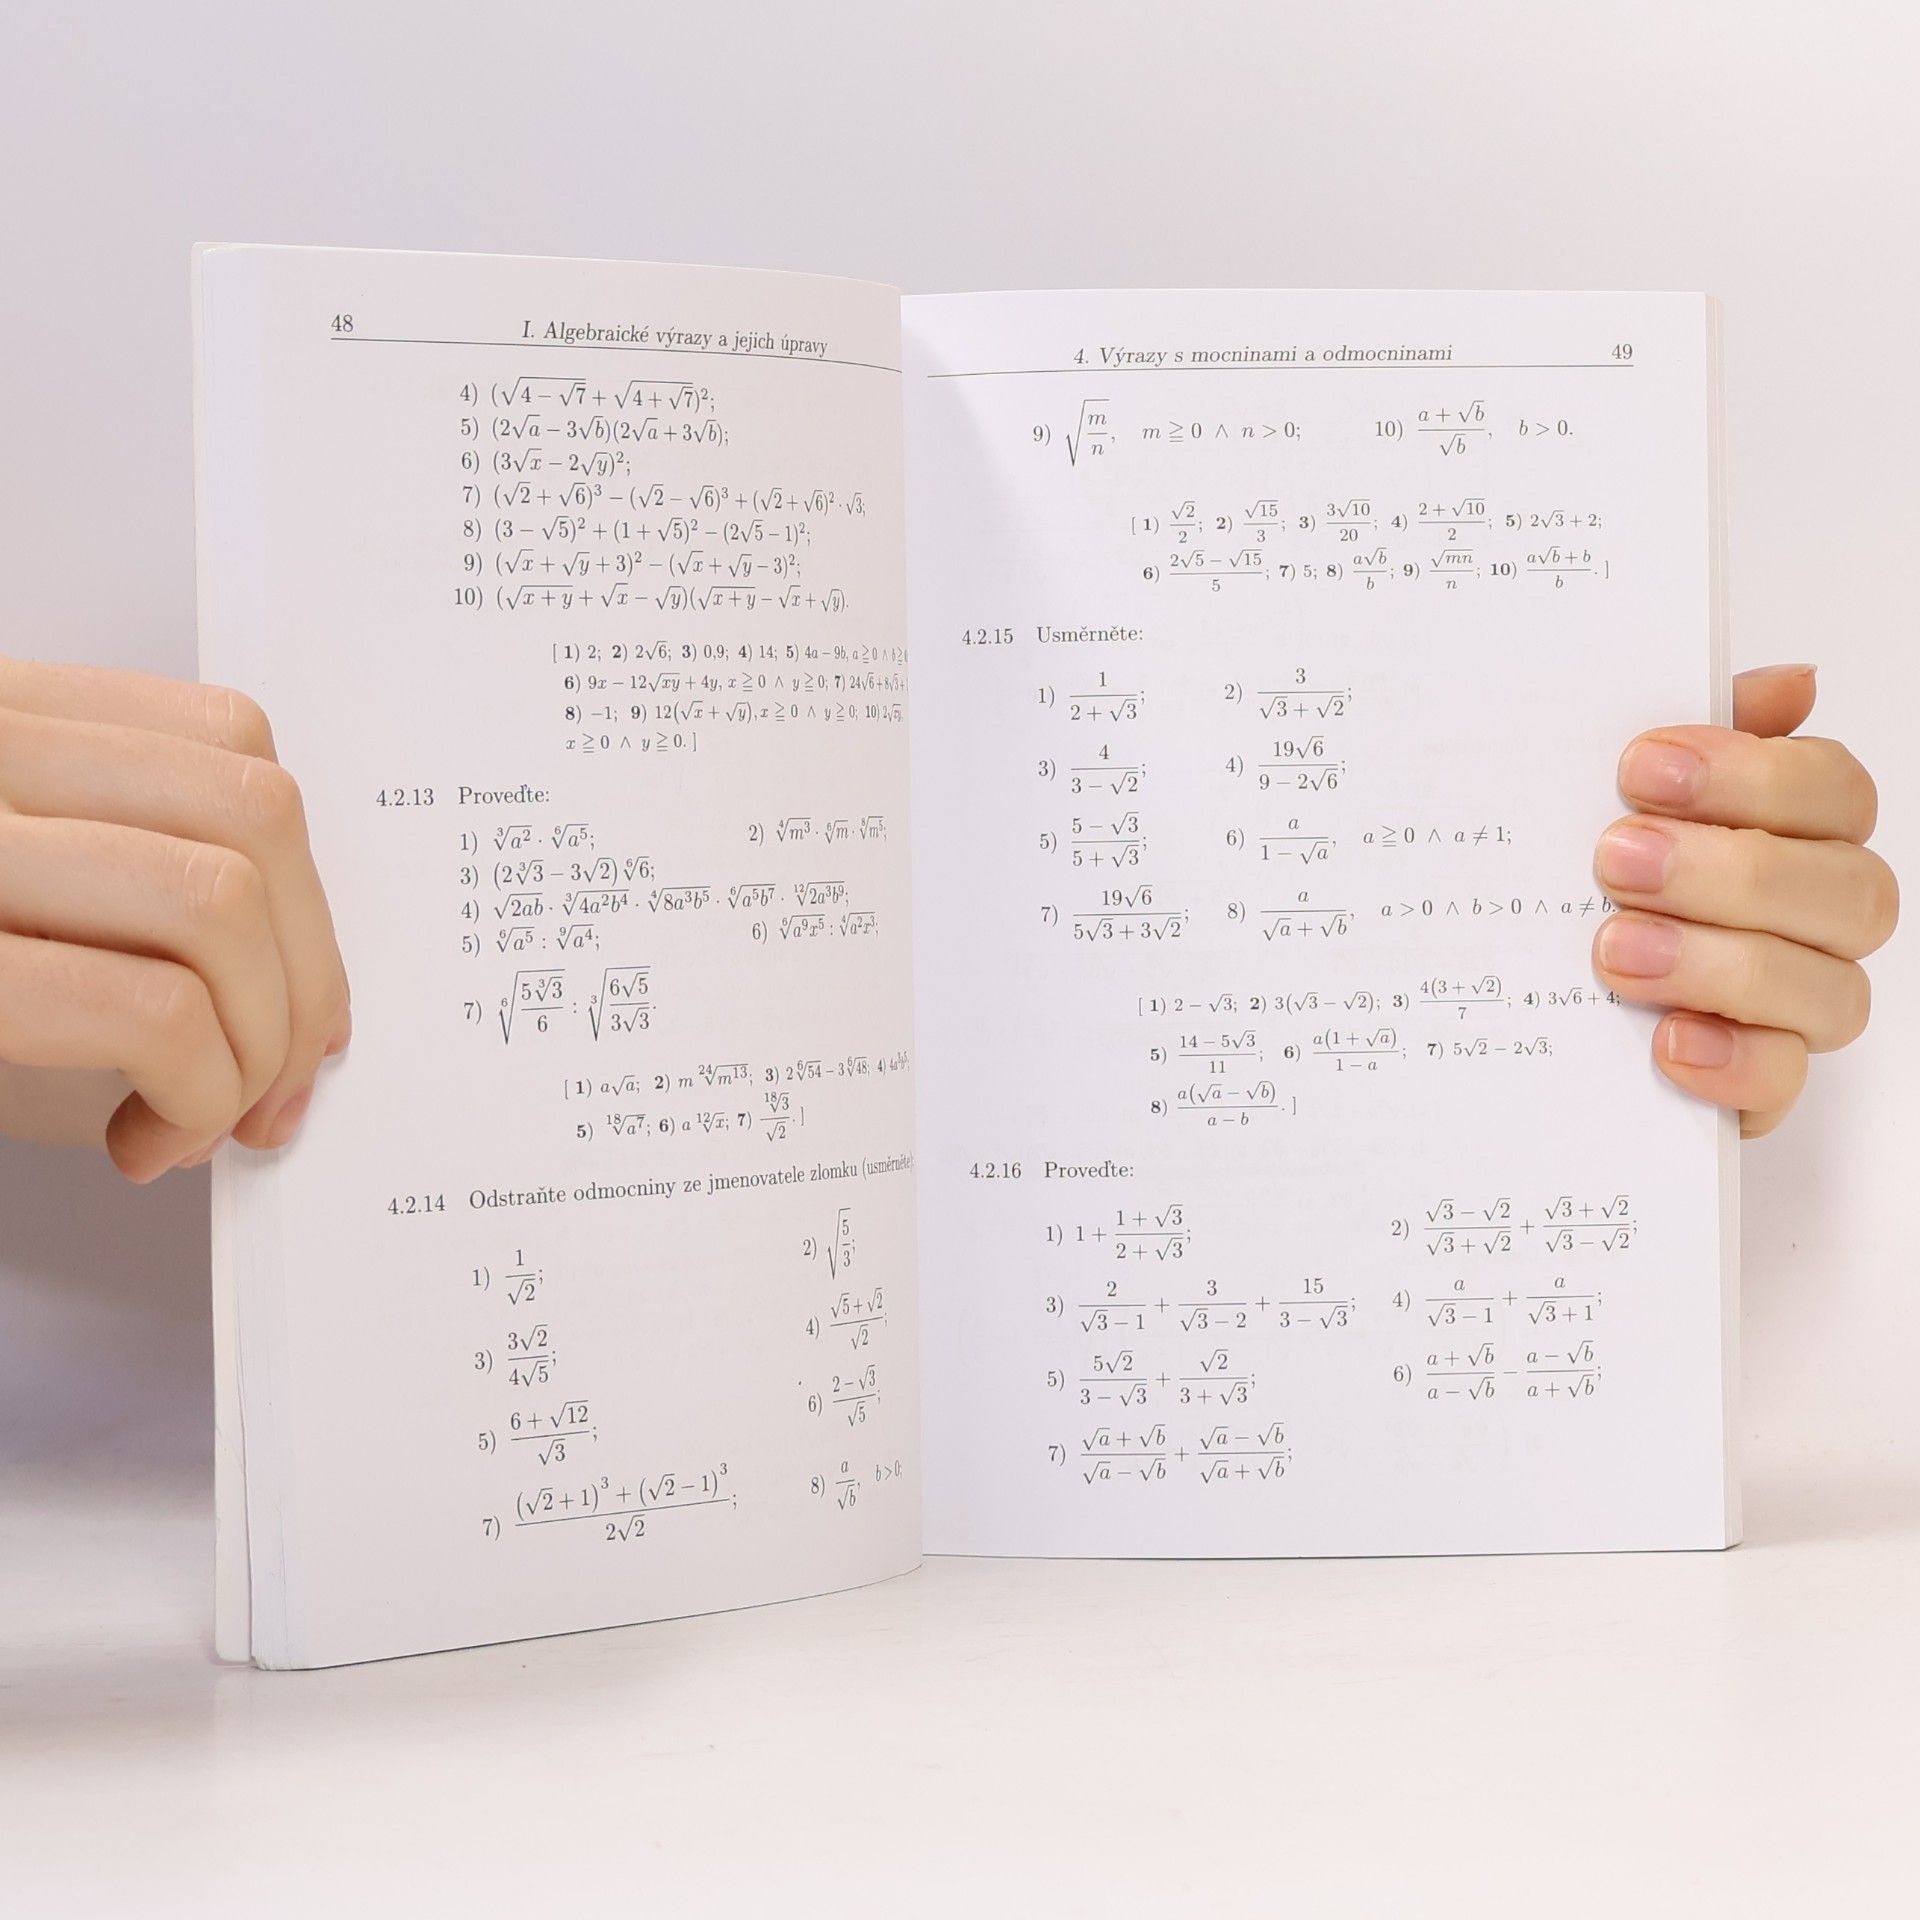 48 I. Algebraické výrazy a jejich úpravy
4) (√(4 − √7) + √(4 + √7))²;
5) (2√a − 3√b)(2√a + 3√b);
6) (3√x − 2√y)²;
7) (√2 + √6)³ − (√2 − √6)³ + (√2 + √6)² · √3;
8) (3 − √5)² + (1 + √5)² − (2√5 − 1)²;
9) (√x + √y + 3)² − (√x + √y − 3)²;
10) (√(x + y) + √x − √y)(√(x + y) − √x + √y).
[ 1) 2; 2) 2√6; 3) 0,9; 4) 14; 5) 4a − 9b, a ≧ 0 ∧ b ≧ 0
6) 9x − 12√(xy) + 4y, x ≧ 0 ∧ y ≧ 0; 7) 24√6 + 8√3 +
8) −1; 9) 12(√x + √y), x ≧ 0 ∧ y ≧ 0; 10) 2√(xy),
x ≧ 0 ∧ y ≧ 0. ]
4.2.13 Proveďte:
1) ∛(a²) · ⁶√(a⁵); 2) ⁴√(m³) · ⁶√m · ⁸√(m⁵);
3) (2∛3 − 3√2) ⁶√6;
4) √(2ab) · ∛(4a²b⁴) · ⁴√(8a³b⁵) · ⁶√(a⁵b⁷) · ¹²√(2a³b⁹);
5) ⁶√(a⁵) : ⁹√(a⁴); 6) ⁶√(a⁹x⁵) : ⁴√(a²x³);
7) ⁶√(5∛3/6) : ∛(6√5/3√3).
[ 1) a√a; 2) m ²⁴√(m¹³); 3) 2 ⁶√54 − 3 ⁶√48; 4) 4a³b⁵;
5) ¹⁸√(a⁷); 6) a ¹²√x; 7) ¹⁸√3/√2. ]
4.2.14 Odstraňte odmocniny ze jmenovatele zlomku (usměrněte):
1) 1/√2; 2) √(5/3);
3) 3√2/4√5; 4) (√5 + √2)/√2;
5) (6 + √12)/√3; 6) (2 − √3)/√5;
7) ((√2 + 1)³ + (√2 − 1)³)/2√2; 8) a/√b, b > 0;
4. Výrazy s mocninami a odmocninami 49
9) √(m/n), m ≧ 0 ∧ n > 0; 10) (a + √b)/√b, b > 0.
[ 1) √2/2; 2) √15/3; 3) 3√10/20; 4) (2 + √10)/2; 5) 2√3 + 2;
6) (2√5 − √15)/5; 7) 5; 8) a√b/b; 9) √(mn)/n; 10) (a√b + b)/b. ]
4.2.15 Usměrněte:
1) 1/(2 + √3); 2) 3/(√3 + √2);
3) 4/(3 − √2); 4) 19√6/(9 − 2√6);
5) (5 − √3)/(5 + √3); 6) a/(1 − √a), a ≧ 0 ∧ a ≠ 1;
7) 19√6/(5√3 + 3√2); 8) a/(√a + √b), a > 0 ∧ b > 0 ∧ a ≠ b.
[ 1) 2 − √3; 2) 3(√3 − √2); 3) 4(3 + √2)/7; 4) 3√6 + 4;
5) (14 − 5√3)/11; 6) a(1 + √a)/(1 − a); 7) 5√2 − 2√3;
8) a(√a − √b)/(a − b). ]
4.2.16 Proveďte:
1) 1 + (1 + √3)/(2 + √3); 2) (√3 − √2)/(√3 + √2) + (√3 + √2)/(√3 − √2);
3) 2/(√3 − 1) + 3/(√3 − 2) + 15/(3 − √3); 4) a/(√3 − 1) + a/(√3 + 1);
5) 5√2/(3 − √3) + √2/(3 + √3); 6) (a + √b)/(a − √b) − (a − √b)/(a + √b);
7) (√a + √b)/(√a − √b) + (√a − √b)/(√a + √b);